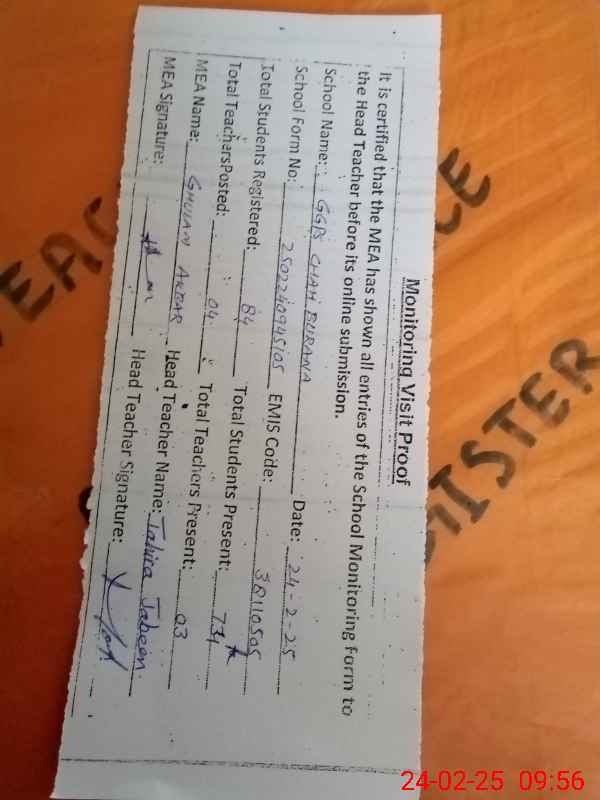 Monitoring Visit Proof
It is certified that the MEA has shown all entries of the School Monitoring Form to
the Head Teacher before its online submission.
School Name: GGPS CHAH BURANA Date: 24-2-25
School Form No: 250224094510S EMIS Code: 38110505
Total Students Registered: 84 Total Students Present: 73
Total TeachersPosted: 04 Total Teachers Present: 03
MEA Name: GHULAM AKBAR Head Teacher Name: Tahira Jabeen.
MEA Signature: Head Teacher Signature:
TEAC
REGISTER
24-02-25 09:56